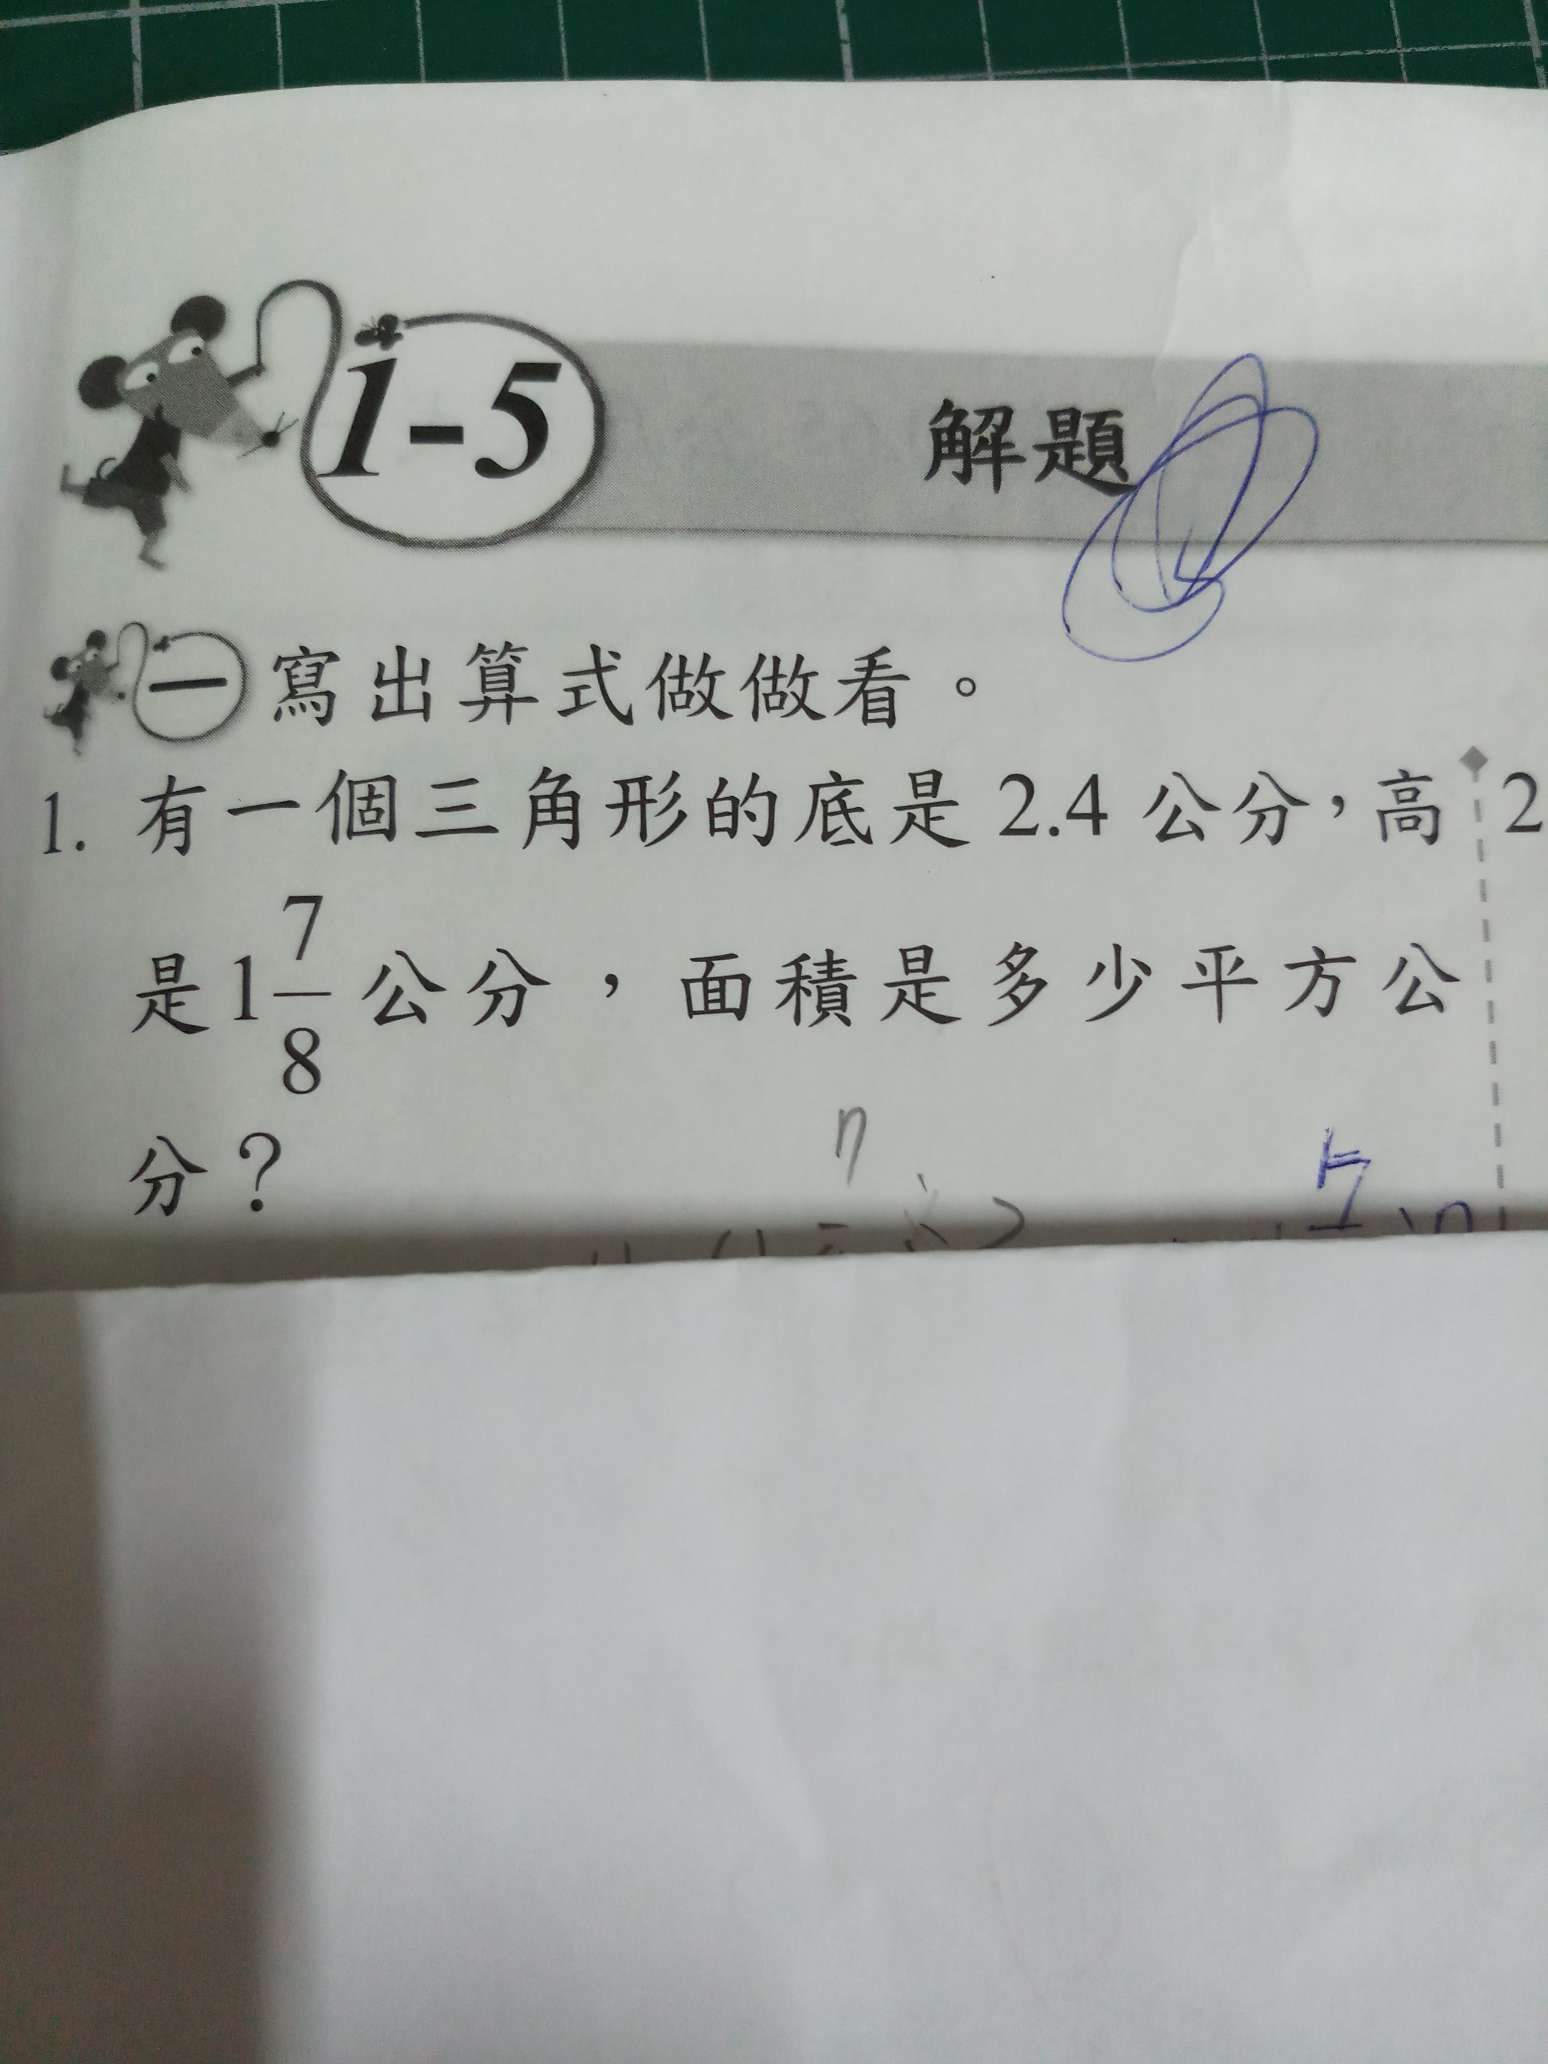 1-5 解題
一 寫出算式做做看。
1. 有一個三角形的底是2.4公分，高
是1 7/8 公分，面積是多少平方公
分？
2